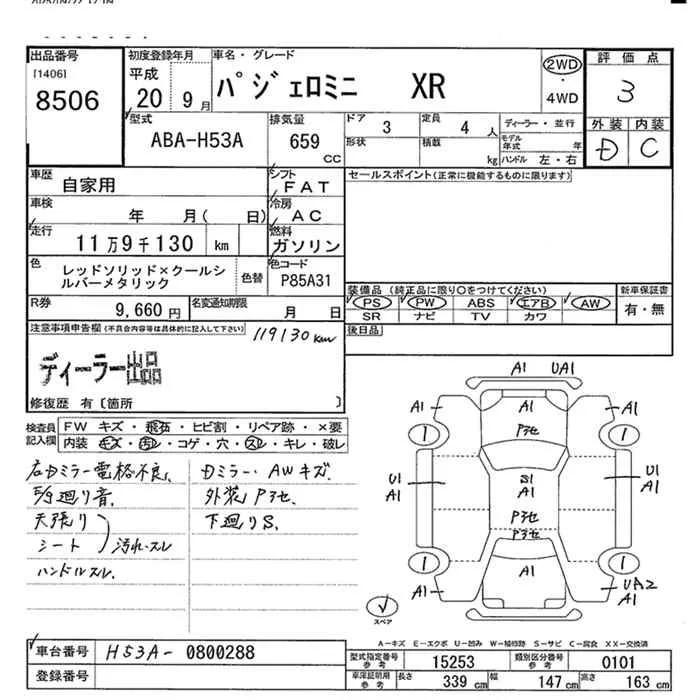 出品番号
[1406]
8506
初度登録年月
平成
20 9月
車名・グレード
パジェロミニ XR
2WD
・
4WD
評価点
3
外装 内装
D C
型式
ABA-H53A
排気量
659
CC
ドア
3
定員
4 人
ディーラー・並行
形状
積載
kg
モデル
年式 年
ハンドル 左・右
車歴
自家用
シフト
FAT
車検
年 月( 日)
冷房
AC
走行
11万9千130 km
燃料
ガソリン
色
レッドソリッド×クールシ
ルバーメタリック
色替
色コード
P85A31
R券
9,660円
名変通知期限
月 日
セールスポイント(正常に機能するものに限ります)
装備品(純正品に限り○をつけてください)
PS PW ABS エアB AW
SR ナビ TV カワ
新車保証書
有・無
後日品
注意事項申告欄(不具合内容等は具体的に記入して下さい)
119130km
ディーラー出品
修復歴 有〔箇所 〕
検査員
記入欄
FW キズ・飛石・ヒビ割・リペア跡・×要
内装・キズ・汚れ・コゲ・穴・スレ・キレ・破レ
右Dミラー電格不良、
天張り
シート
汚れ・スレ
ハンドルスレ.
Dミラー・AWキズ.
外装Pヌセ
下廻りS.
A1 UA1
A1
A1
A1
Pヌセ
1
1
U1
A1
S1
A1
U1
A1
Pヌセ
Pヌセ
1
1
A1
A1
UA2
A1
スペア
A-キズ E-エクボ U-凹み W-補修跡 S-サビ C-腐食 XX-交換済
車台番号
H53A-0800288
登録番号
型式指定番号
参考
15253
類別区分番号
参考
0101
車庫証明用
参考
長さ
339 cm
幅
147 cm
高さ
163 cm